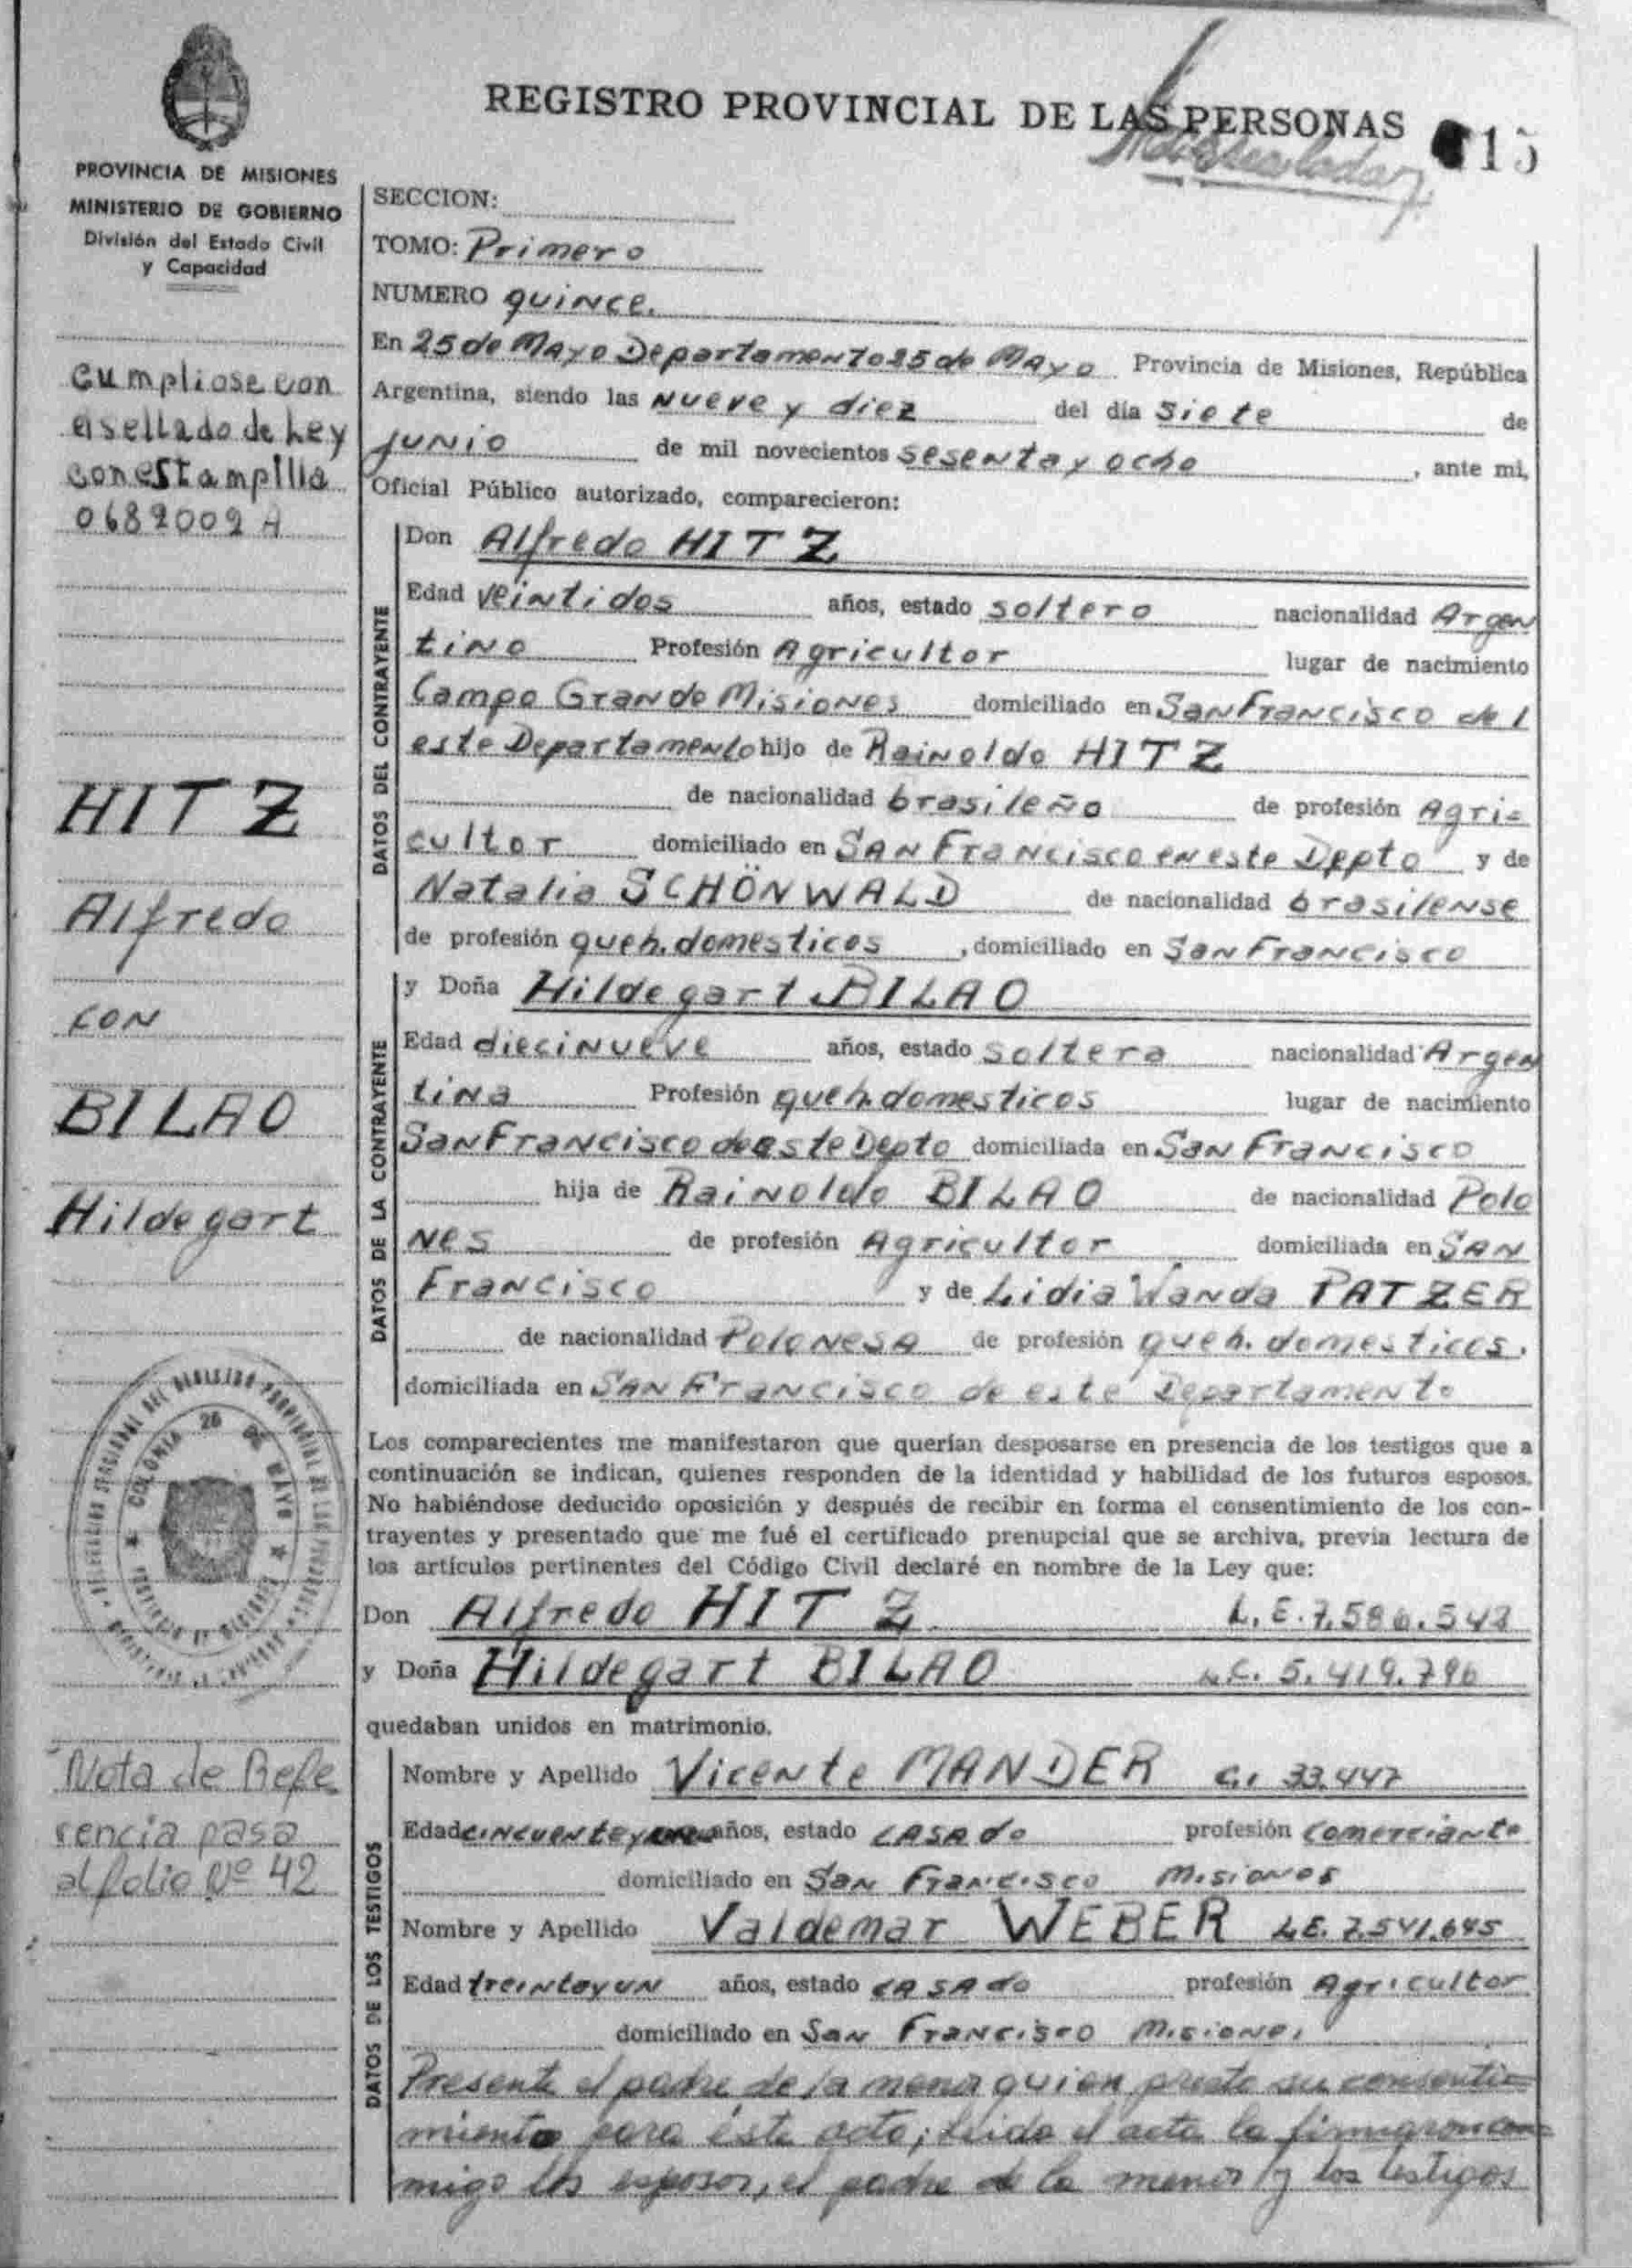 REGISTRO PROVINCIAL DE LAS PERSONAS
15
PROVINCIA DE MISIONES
MINISTERIO DE GOBIERNO
División del Estado Civil
y Capacidad
SECCION:
TOMO: Primero
NUMERO quince.
En 25 de Mayo Departamento 25 de Mayo Provincia de Misiones, República
Argentina, siendo las nueve y diez del día siete de
junio de mil novecientos sesenta y ocho, ante mi,
Oficial Público autorizado, comparecieron:
cumpliose con
el sellado de Ley
con estampilla
0689009 A
HITZ
Alfredo
CON
BILAO
Hildegart
DATOS DEL CONTRAYENTE
Don Alfredo HITZ
Edad veintidos años, estado soltero nacionalidad Argen
tino Profesión Agricultor lugar de nacimiento
Campo Grande Misiones domiciliado en San Francisco de
este Departamento hijo de Rainoldo HITZ
de nacionalidad brasileño de profesión Agri=
cultor domiciliado en San Francisco en este Dppto y de
Natalia SCHÖNWALD de nacionalidad brasilense
de profesión queh. domesticos, domiciliado en San Francisco
DATOS DE LA CONTRAYENTE
y Doña Hildegart BILAO
Edad diecinueve años, estado soltera nacionalidad Argen
tina Profesión queh domesticos lugar de nacimiento
San Francisco de este Depto domiciliada en San Francisco
hija de Rainoldo BILAO de nacionalidad Polo
nes de profesión Agricultor domiciliada en San
Francisco y de Lidia Wanda PATZER
de nacionalidad Polonesa de profesión queh. domesticos.
domiciliada en San Francisco de este Departamento
COLONIA 25 DE MAYO
Los comparecientes me manifestaron que querían desposarse en presencia de los testigos que a
continuación se indican, quienes responden de la identidad y habilidad de los futuros esposos.
No habiéndose deducido oposición y después de recibir en forma el consentimiento de los con-
trayentes y presentado que me fué el certificado prenupcial que se archiva, previa lectura de
los artículos pertinentes del Código Civil declaré en nombre de la Ley que:
Don Alfredo HITZ L.E. 7.586.543
y Doña Hildegart BILAO L.C. 5.419.796
quedaban unidos en matrimonio.
Nota de Refe
rencia pasa
al folio Nº 42
DATOS DE LOS TESTIGOS
Nombre y Apellido Vicente MANDER C.I 33.447
Edad cincuenta y años, estado casado profesión comerciante
domiciliado en San Francisco Misiones
Nombre y Apellido Valdemar WEBER L.E. 7.541.645
Edad treintayun años, estado casado profesión Agricultor
domiciliado en San Francisco Misiones
Presente el padre de la menor quien presta su consenti=
miento para éste acto; Leida el acta la firmaron con=
migo los esposos, el padre de la menor y los testigos